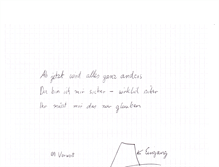 Ab jetzt wird alles ganz anders
Da bin ich mir sicher – wirklich sicher
Ihr müsst mir das nur glauben